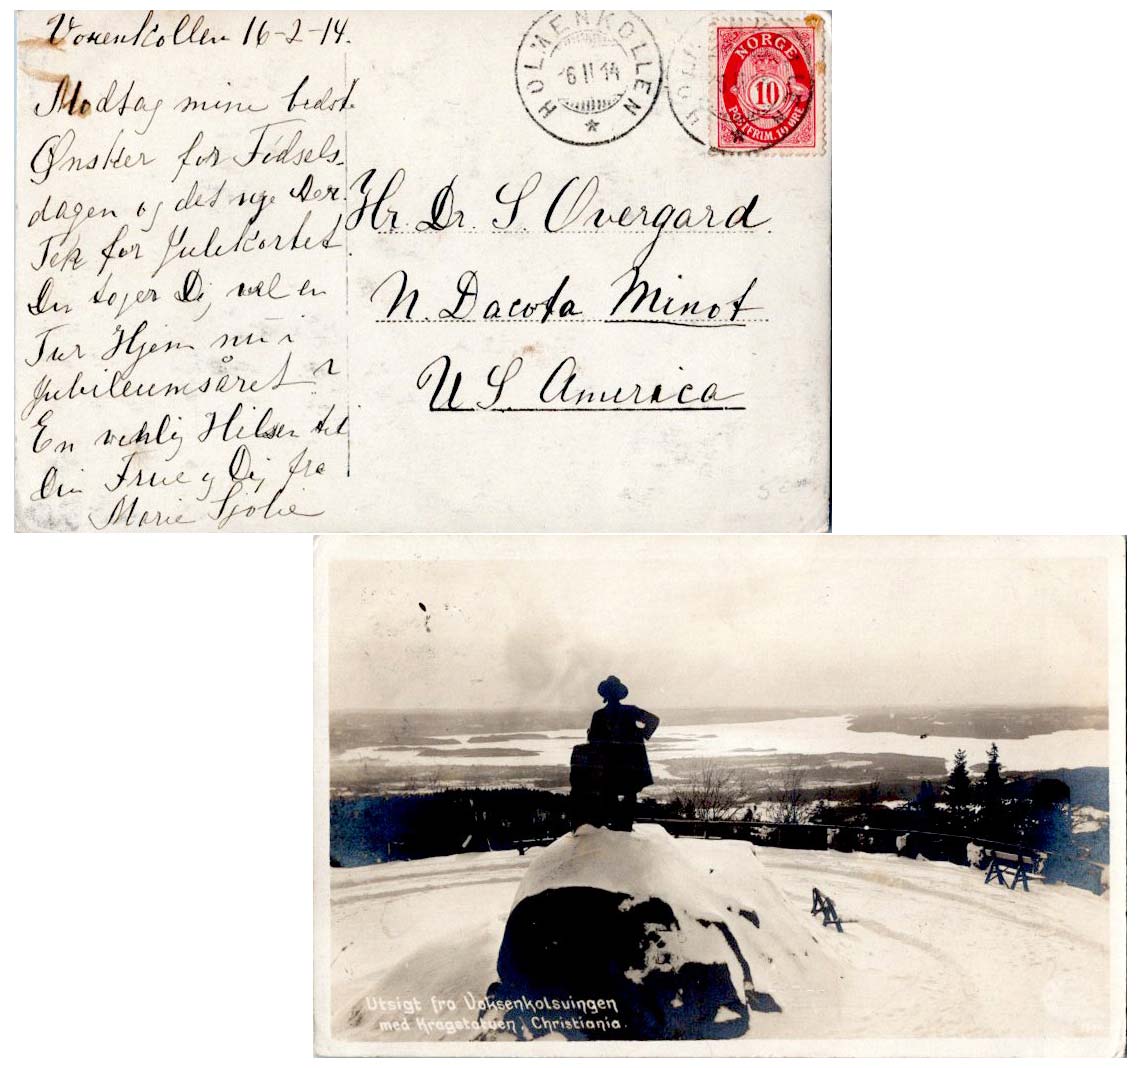 Voxenkollen 16-2-14.
Modtag mine bedste
Ønsker for Fødsels-
dagen og det nye Aar.
Tak for Julekortet
Du tager Dig vel en
Tur Hjem nu i
Jubileumsåret?
En venlig Hilsen til
Din Frue og Dig fra
Marie Sjølie
HOLMENKOLLEN
16 II 14
NORGE
10
POSTFRIM. 10 ØRE
Hr. Dr. S. Overgard.
N. Dacota Minot
U S. America
Utsigt fra Voksenkolsvingen
med Kragstatuen, Christiania.